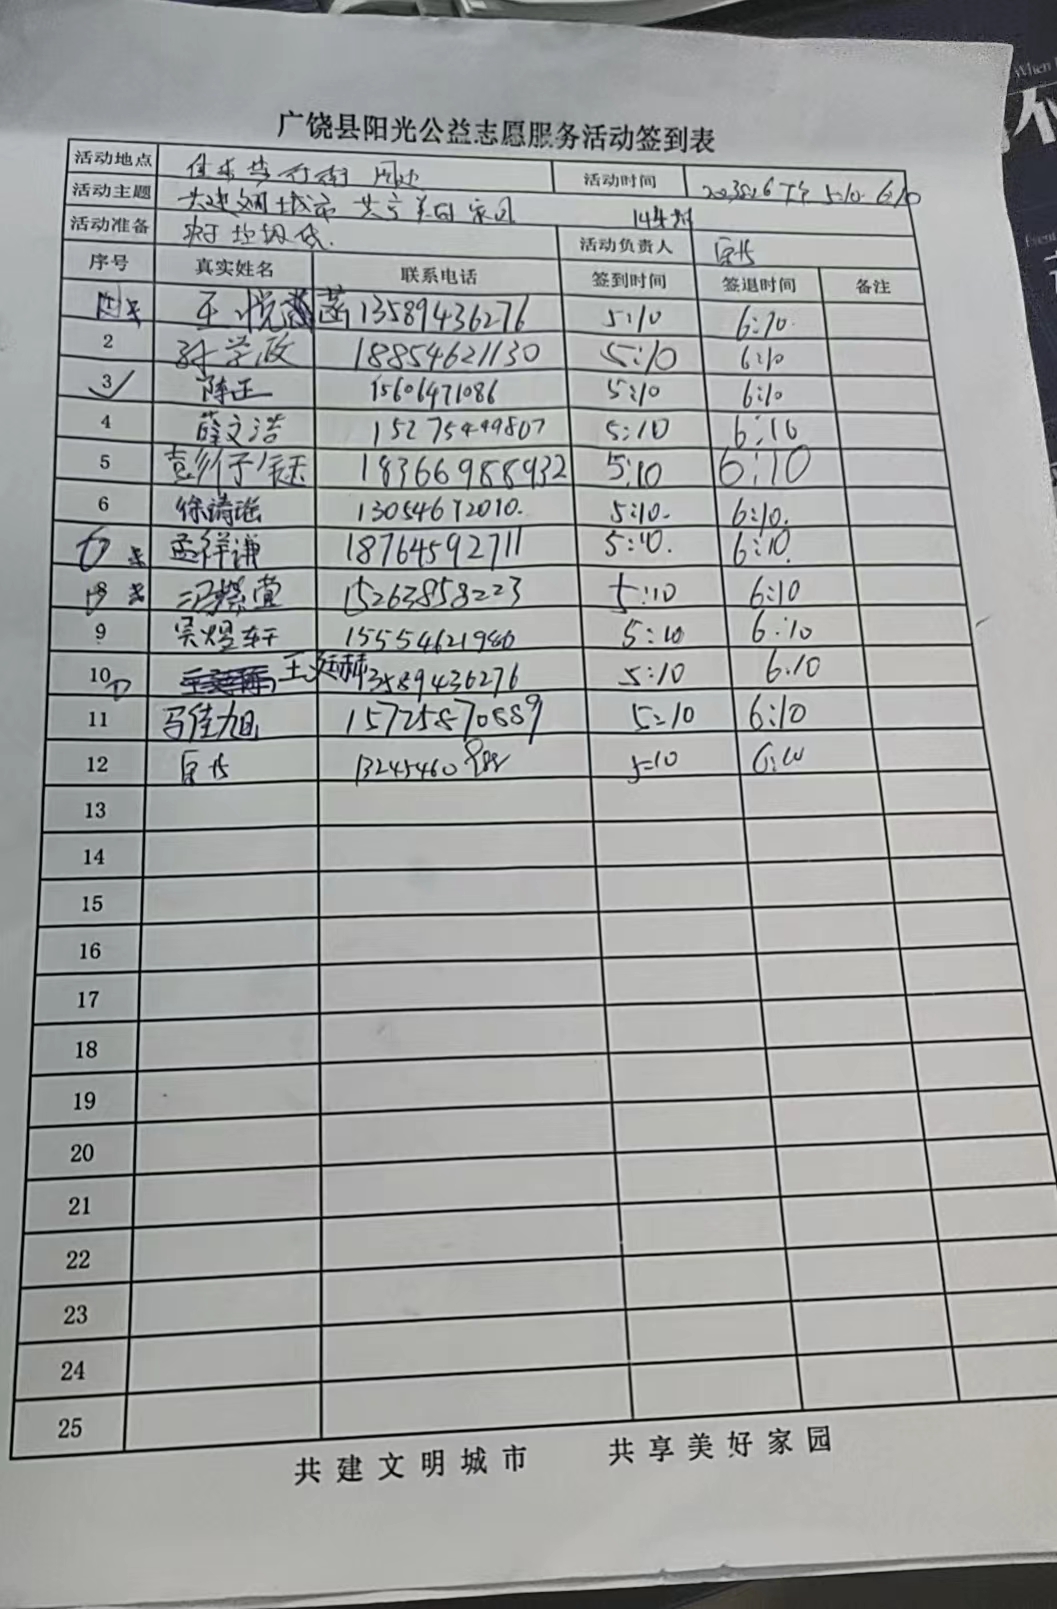 广饶县阳光公益志愿服务活动签到表
活动地点 佳乐步行街 周边 活动时间 2023.8.26 下午 5:10-6:10
活动主题 共建文明城市 共享美好家园
活动准备 夹子 垃圾袋. 活动负责人
序号 真实姓名 联系电话 签到时间 签退时间 备注
王悦菡 13589436276 5:10 6:10
2 孙学政 18854621130 5:10 6:10
3 陈正 15601471086 5:10 6:10
4 薛文浩 15275449807 5:10 6:10
5 18366988932 5:10 6:10
6 徐诗瑶 13054672010. 5:10. 6:10.
7 孟祥谦 18764592711 5:10. 6:10.
8 15263858223 5:10 6:10
9 吴煜轩 15554621980 5:10 6:10
10 王廷赫 13589436276 5:10 6:10
11 马佳旭 15725870889 5:10 6:10
12 5:10 6:10
13
14
15
16
17
18
19
20
21
22
23
24
25
共建文明城市 共享美好家园
When
Event